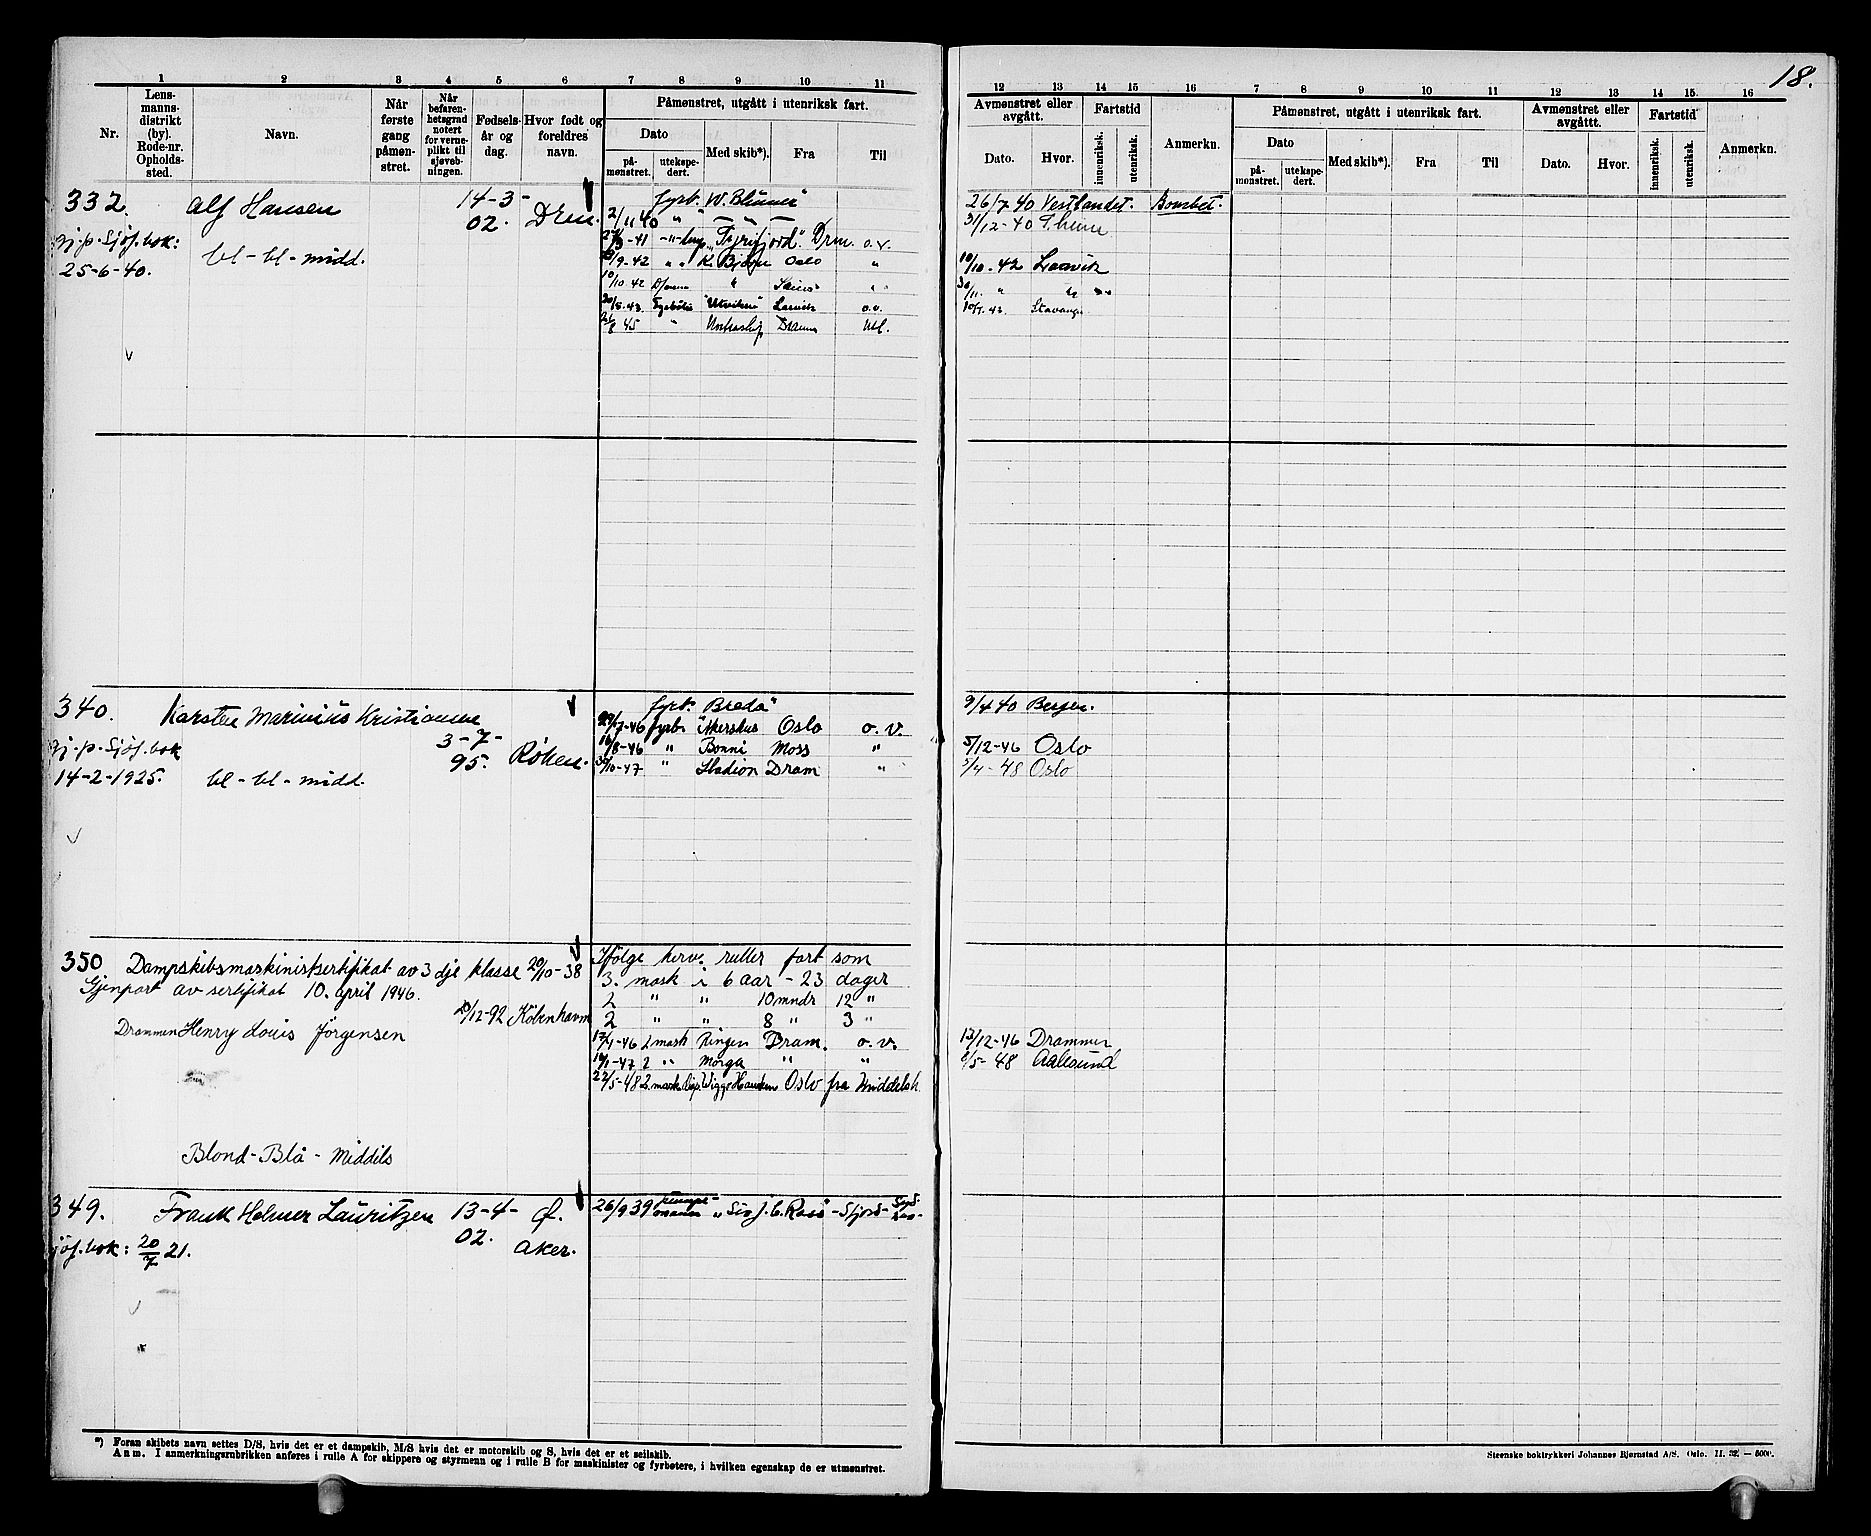 18.
1 2 3 4 5 6 7 8 9 10 11
Nr.
Lens-
manns-
distrikt
(by).
Rode-nr.
Opholds-
sted.
Navn.
Når
første
gang
påmøn-
stret.
Når
befaren-
hetsgrad
notert
for verne-
plikt til
sjøveb-
ningen.
Fødsels-
år og
dag.
Hvor født og
foreldres
navn.
Påmønstret, utgått i utenriksk fart.
Dato
på-
mønstret.
utekspe-
dert.
Med skib*).
Fra
Til
332.
Alf Hansen
14-3-
02.
Drm.
gj.p. Sjøf.bok:
25-6-40.
bl-bl-midd.
fyrb. "W. Blumer"
2/11 40 " "
-41 "Tyrifjord". Drm. o.v.
/9-42 " " K. Bjørn Oslo "
10/10.42
Larvik o.v.
45 " Dramm Utl.
340.
Karsten Marinius Kristiansen
3-7-
95.
Røken.
gj-p-Sjöf.bok
14-2-1925.
bl-bl-midd.
fyrb. "Breda"
/7-46 fyrb. Akershus Oslo o.v.
16/8-46 " Bonni Moss "
30/10-47 " Stadion Dram "
350
Dampskibsmaskinistsertifikat av 3dje klasse 20/10-38
Gjenpart av sertifikat 10. april 1946.
/12-92 Köbenhavn
Drammen Henry Louis Jörgensen
Blond-Blå-Middels
Ifölge herv. ruller fart som
3. mask i 6 aar - 23 dager
2 " " 10 mndr 12 "
2 " " 8 " 3 "
/4-46 2 mask Ringen Dram. o.v.
/1-47 2 " Morga " "
22/5-48 2. mask Wiggo Hansteen Oslo fra Middelsh.
349.
Frank Helmer Lauritzen
13-4-
02.
Ø.
Aker.
Sjøf.bok: 20/7 21.
26/9 39 pumpe-
mann "Sir J. C. Ross" - Sfjord-
*) Foran skibets navn settes D/S, hvis det er et dampskib, M/S hvis det er motorskib og S, hvis det er et seilskib.
Anm. I anmerkningsrubrikken anføres i rulle A for skippere og styrmenn og i rulle B for maskinister og fyrbøtere, i hvilken egenskap de er utmønstret.
12 13 14 15 16 7 8 9 10 11 12 13 14 15. 16
Avmønstret eller
avgått.
Dato.
Hvor.
Fartstid
innenriksk.
utenriksk.
Anmerkn.
Påmønstret, utgått i utenriksk fart.
Dato
på-
mønstret.
utekspe-
dert.
Med skib*).
Fra
Til
Avmønstret eller
avgåttt.
Dato.
Hvor.
Fartstid
innenriksk.
utenriksk.
Anmerkn.
26/7 40 Vestlandet. Bombet.
31/12-40 T.heim
10/10.42 Larvik
30/11. " " "
43 Stavang.
9/4 40 Bergen.
5/12-46 Oslo
/4-48 Oslo
13/12-46 Drammen
8/5-48 Aalesund
Steenske boktrykkeri Johannes Bjørnstad A/S. Oslo. 11. 32. — 5000.